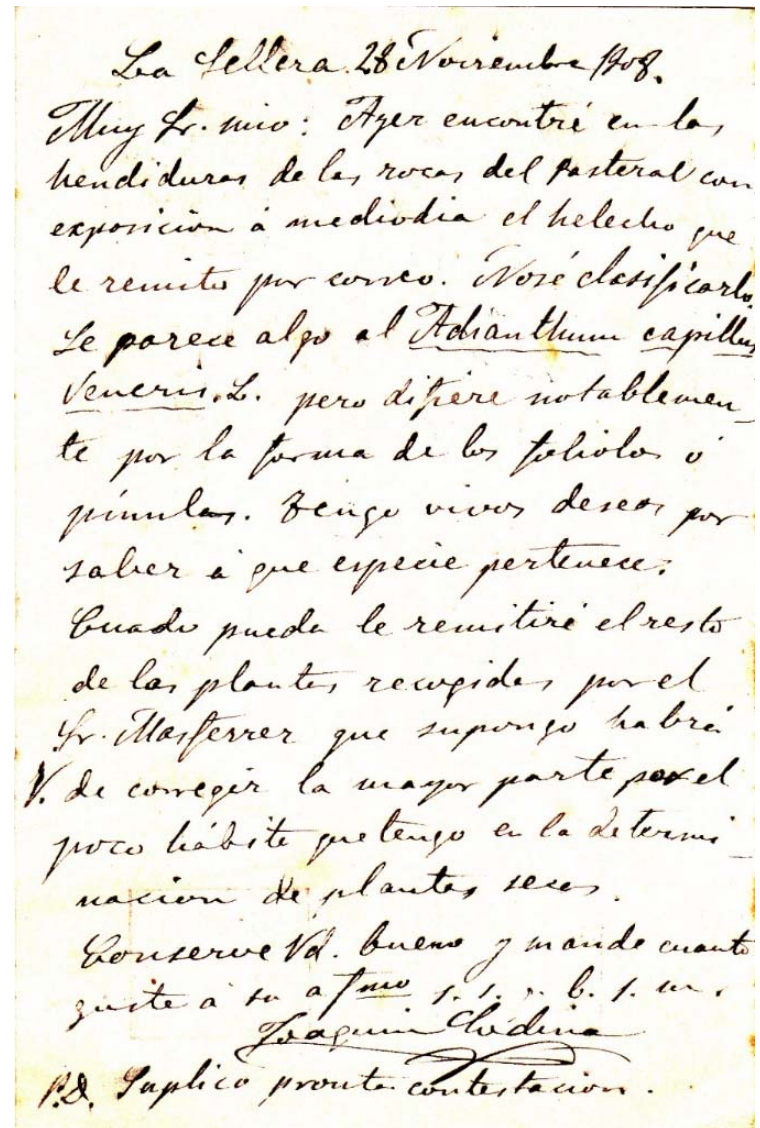 La Sellera 28 Noviembre 1908.
Muy Sr. mio: Ayer encontré en las
hendiduras de las rocas del Pasteral con
exposicion á mediodia el helecho que
le remito por correo. Nosé clasificarlo.
Se parece algo al Adianthum capillus
Veneris. L. pero difiere notablemen_
te por la forma de los foliolos ó
pínnulas. Tengo vivos deseos por
saber á que especie pertenece.
Cuado pueda le remitiré el resto
de las plantas recogidas por el
Sr. Masferrer que supongo habrá
V. de corregir la mayor parte por el
poco hábito que tengo en la determi_
nacion de plantas secas.
Conserve Vd. bueno y mande cuanto
guste á su afmo s. s. q. b. s. m.
Joaquin Codina
P.D. Suplico pronta contestacion.